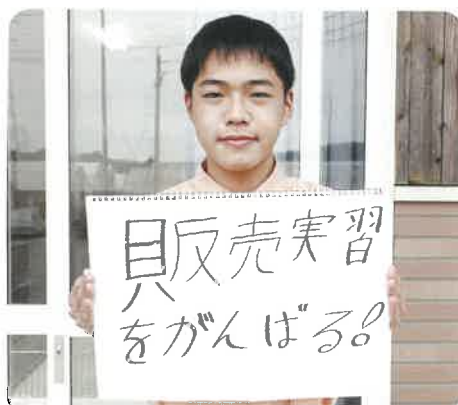 販売実習
をがんばる!